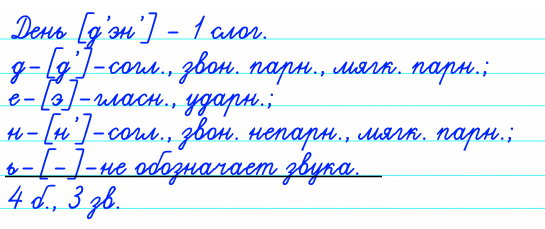 День [д’эн’] – 1 слог.
д–[д’]–согл., звон. парн., мягк. парн.;
е–[э]–гласн., ударн.;
н–[н’]–согл., звон. непарн., мягк. парн.;
ь–[–]–не обозначает звука.
4 б., 3 зв.